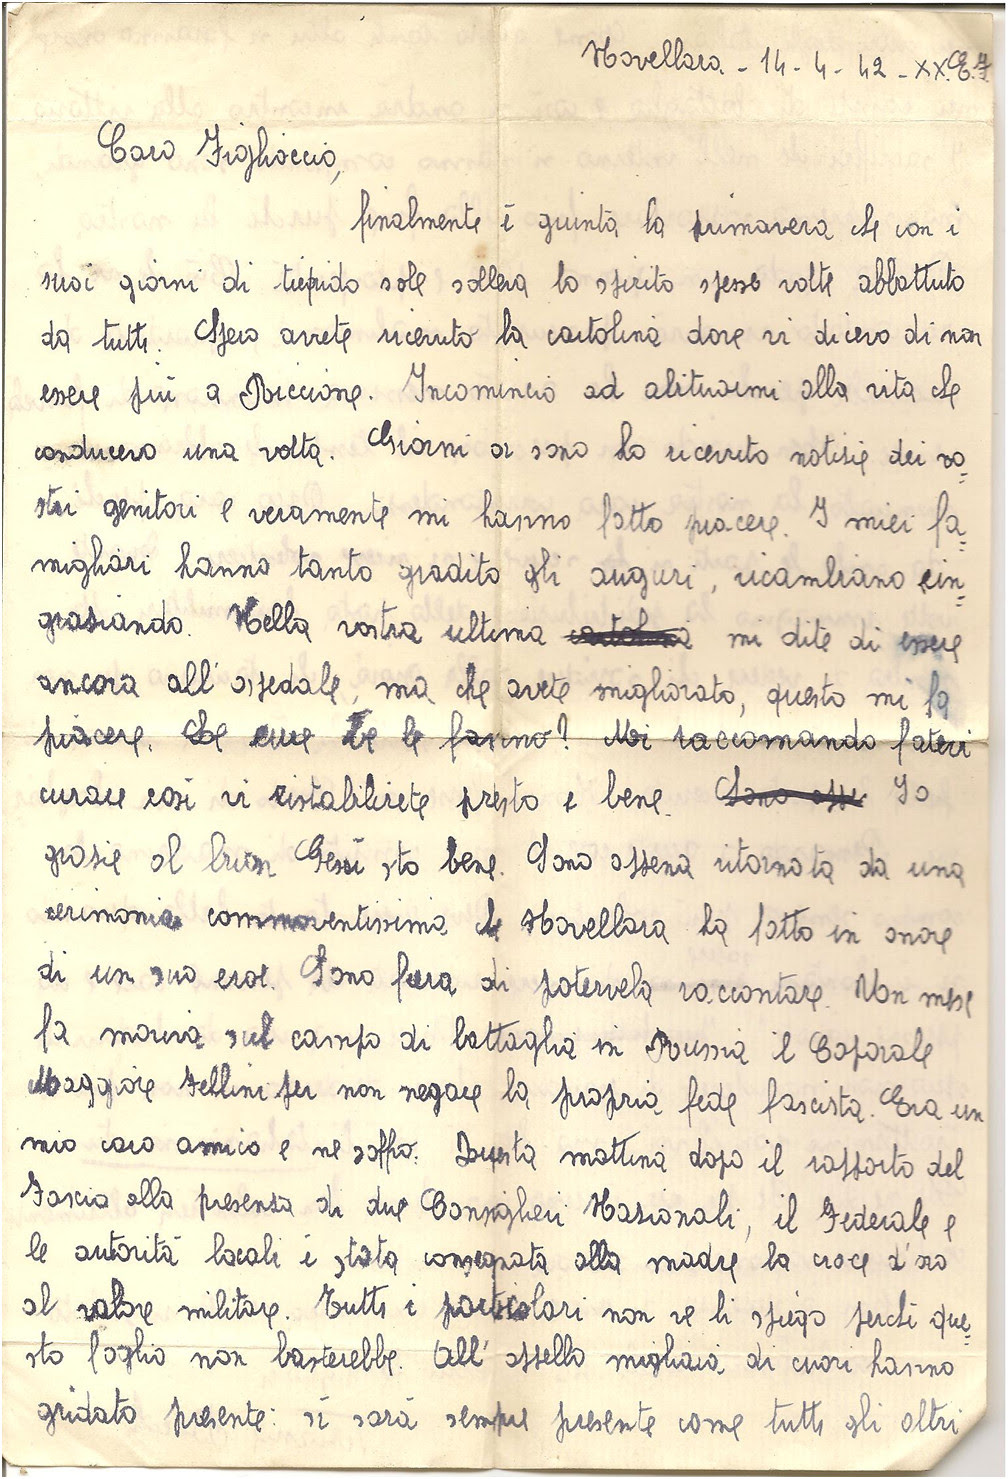 Novellara - 14 - 4 - 42 - XX. E. F.
Caro Figlioccio,
finalmente è giunta la primavera che con i
suoi giorni di tiepido sole solleva lo spirito spesse volte abbattuto
da tutti. Spero avrete ricevuto la cartolina dove vi dicevo di non
essere più a Riccione. Incomincio ad abituarmi alla vita che
conducevo una volta. Giorni or sono ho ricevuto notizie dei vo=
stri genitori e veramente mi hanno fatto piacere. I miei fa=
migliari hanno tanto gradito gli auguri, ricambiano rin=
graziando. Nella vostra ultima cartolina mi dite di essere
ancora all'ospedale, ma che avete migliorato, questo mi fa
piacere. Le cure ve le fanno? Mi raccomando fatevi
curare così vi ristabilirete presto e bene. Sono appe Io
grazie al buon Gesù sto bene. Sono appena ritornata da una
cerimonia commoventissima che Novellara ha fatto in onore
di un suo eroe. Sono fiera di potervela raccontare. Un mese
fa moriva sul campo di battaglia in Russia il Caporale
Maggiore Fellini per non negare la propria fede fascista. Era un
mio caro amico e ne soffro. Questa mattina dopo il rapporto del
Fascio alla presenza di due Consiglieri Nazionali, il Federale e
le autorità locali è stata consegnata alla madre la croce d'oro
al valore militare. Tutti i particolari non ve li spiego perché que=
sto foglio non basterebbe. All'appello migliaia di cuori hanno
gridato presente: sì sarà sempre presente come tutti gli altri